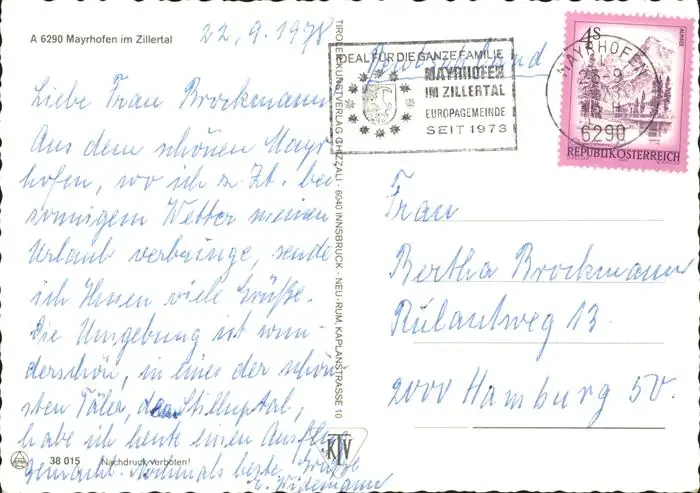 A 6290 Mayrhofen im Zillertal
22.9.1978
Liebe Frau Brockmann
Aus dem schönen Mayr
hofen, wo ich z. Zt. bei
sonnigem Wetter meinen
Urlaub verbringe, sende
ich Ihnen viele Grüße.
Die Umgebung ist wun-
derschön, in eines der schön
sten Täler, Stilluptal,
habe ich heute einen Ausflug
gemacht. Nochmals beste Grüße
Wiedemann
38 015 Nachdruck verboten!
TIROLER KUNSTVERLAG CHIZZALI · 6040 INNSBRUCK - NEU-RUM, KAPLANSTRASSE 10
KTV
IDEAL FÜR DIE GANZE FAMILIE
MAYRHOFEN
IM ZILLERTAL
EUROPAGEMEINDE
SEIT 1973
MAYRHOFEN
6290
4S
REPUBLIK ÖSTERREICH
Frau
Bertha Brockmann
Rulantweg 13.
2000 Hamburg 50.